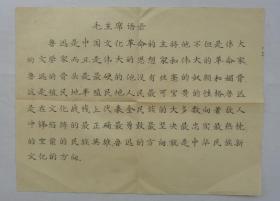 毛主席语录
鲁迅是中国文化革命的主将他不但是伟大
的文学家而且是伟大的思想家和伟大的革命家
鲁迅的骨头是最硬的他没有丝毫的奴颜和媚骨
这是殖民地半殖民地人民最可宝贵的性格鲁迅
是在文化战线上代表全民族的大多数向着敌人
冲锋陷阵的最正确最勇敢最坚决最忠实最热忱
的空前的民族英雄鲁迅的方向就是中华民族新
文化的方向